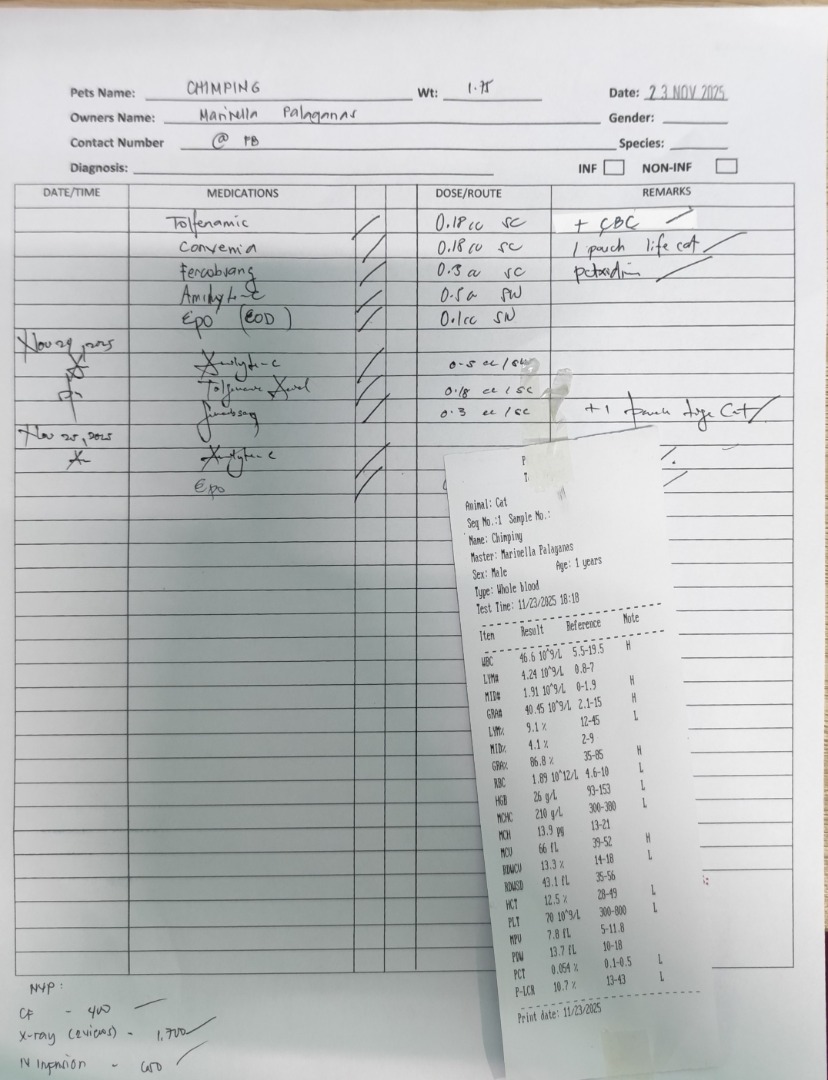 Pets Name: CHIMPING Wt: 1.75 Date: 23 NOV 2025
Owners Name: Marinella Palaganas Gender:
Contact Number @ FB Species:
Diagnosis: INF NON-INF
DATE/TIME MEDICATIONS DOSE/ROUTE REMARKS
Tolfenamic 0.18 cc SC + CBC
Convenia 0.18 cc SC 1 pouch life cat
0.3 cc SC
0.5 cc
Epo (EOD) 0.1cc
Nov 24, 2025
0.5 cc /
0.18 cc / SC
0.3 cc / SC +1 pouch Cat
Nov 25, 2025
Epo
Animal: Cat
Seq No.:1 Sample No.:
Name: Chimping
Master: Marinella Palaganas
Sex: Male Age: 1 years
Type: Whole blood
Test Time: 11/23/2025 18:18
Item Result Reference Note
WBC 46.6 10^9/L 5.5-19.5 H
LYM# 4.24 10^9/L 0.8-7
MID# 1.91 10^9/L 0-1.9 H
GRA# 40.45 10^9/L 2.1-15 H
LYM% 9.1 % 12-45 L
MID% 4.1 % 2-9
GRA% 86.8 % 35-85 H
RBC 1.89 10^12/L 4.6-10 L
HGB 26 g/L 93-153 L
MCHC 210 g/L 300-380 L
MCH 13.9 pg 13-21
MCV 66 fL 39-52 H
RDWCV 13.3 % 14-18 L
RDWSD 43.1 fL 35-56
HCT 12.5 % 28-49 L
PLT 70 10^9/L 300-800 L
MPV 7.8 fL 5-11.8
PDW 13.7 fL 10-18
PCT 0.054 % 0.1-0.5 L
P-LCR 10.7 % 13-43 L
Print date: 11/23/2025
CF - 400
X-ray (2views) - 1,700
IV - 650